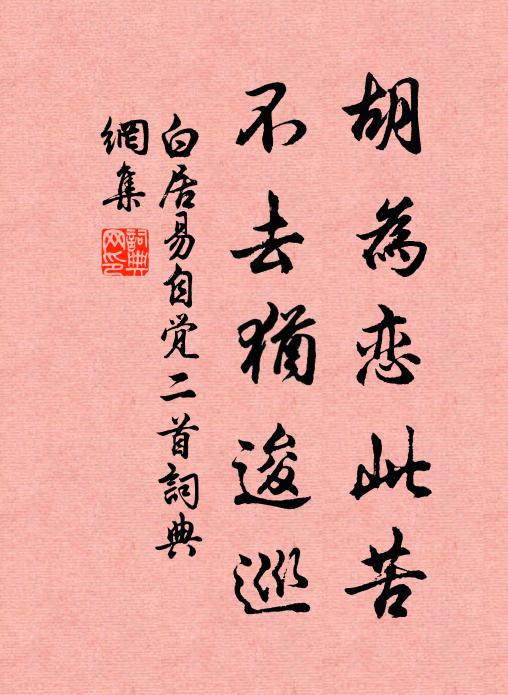 胡為恋此苦
不去猶逡巡
白居易自觉二首詞典
網集
詞典
网印